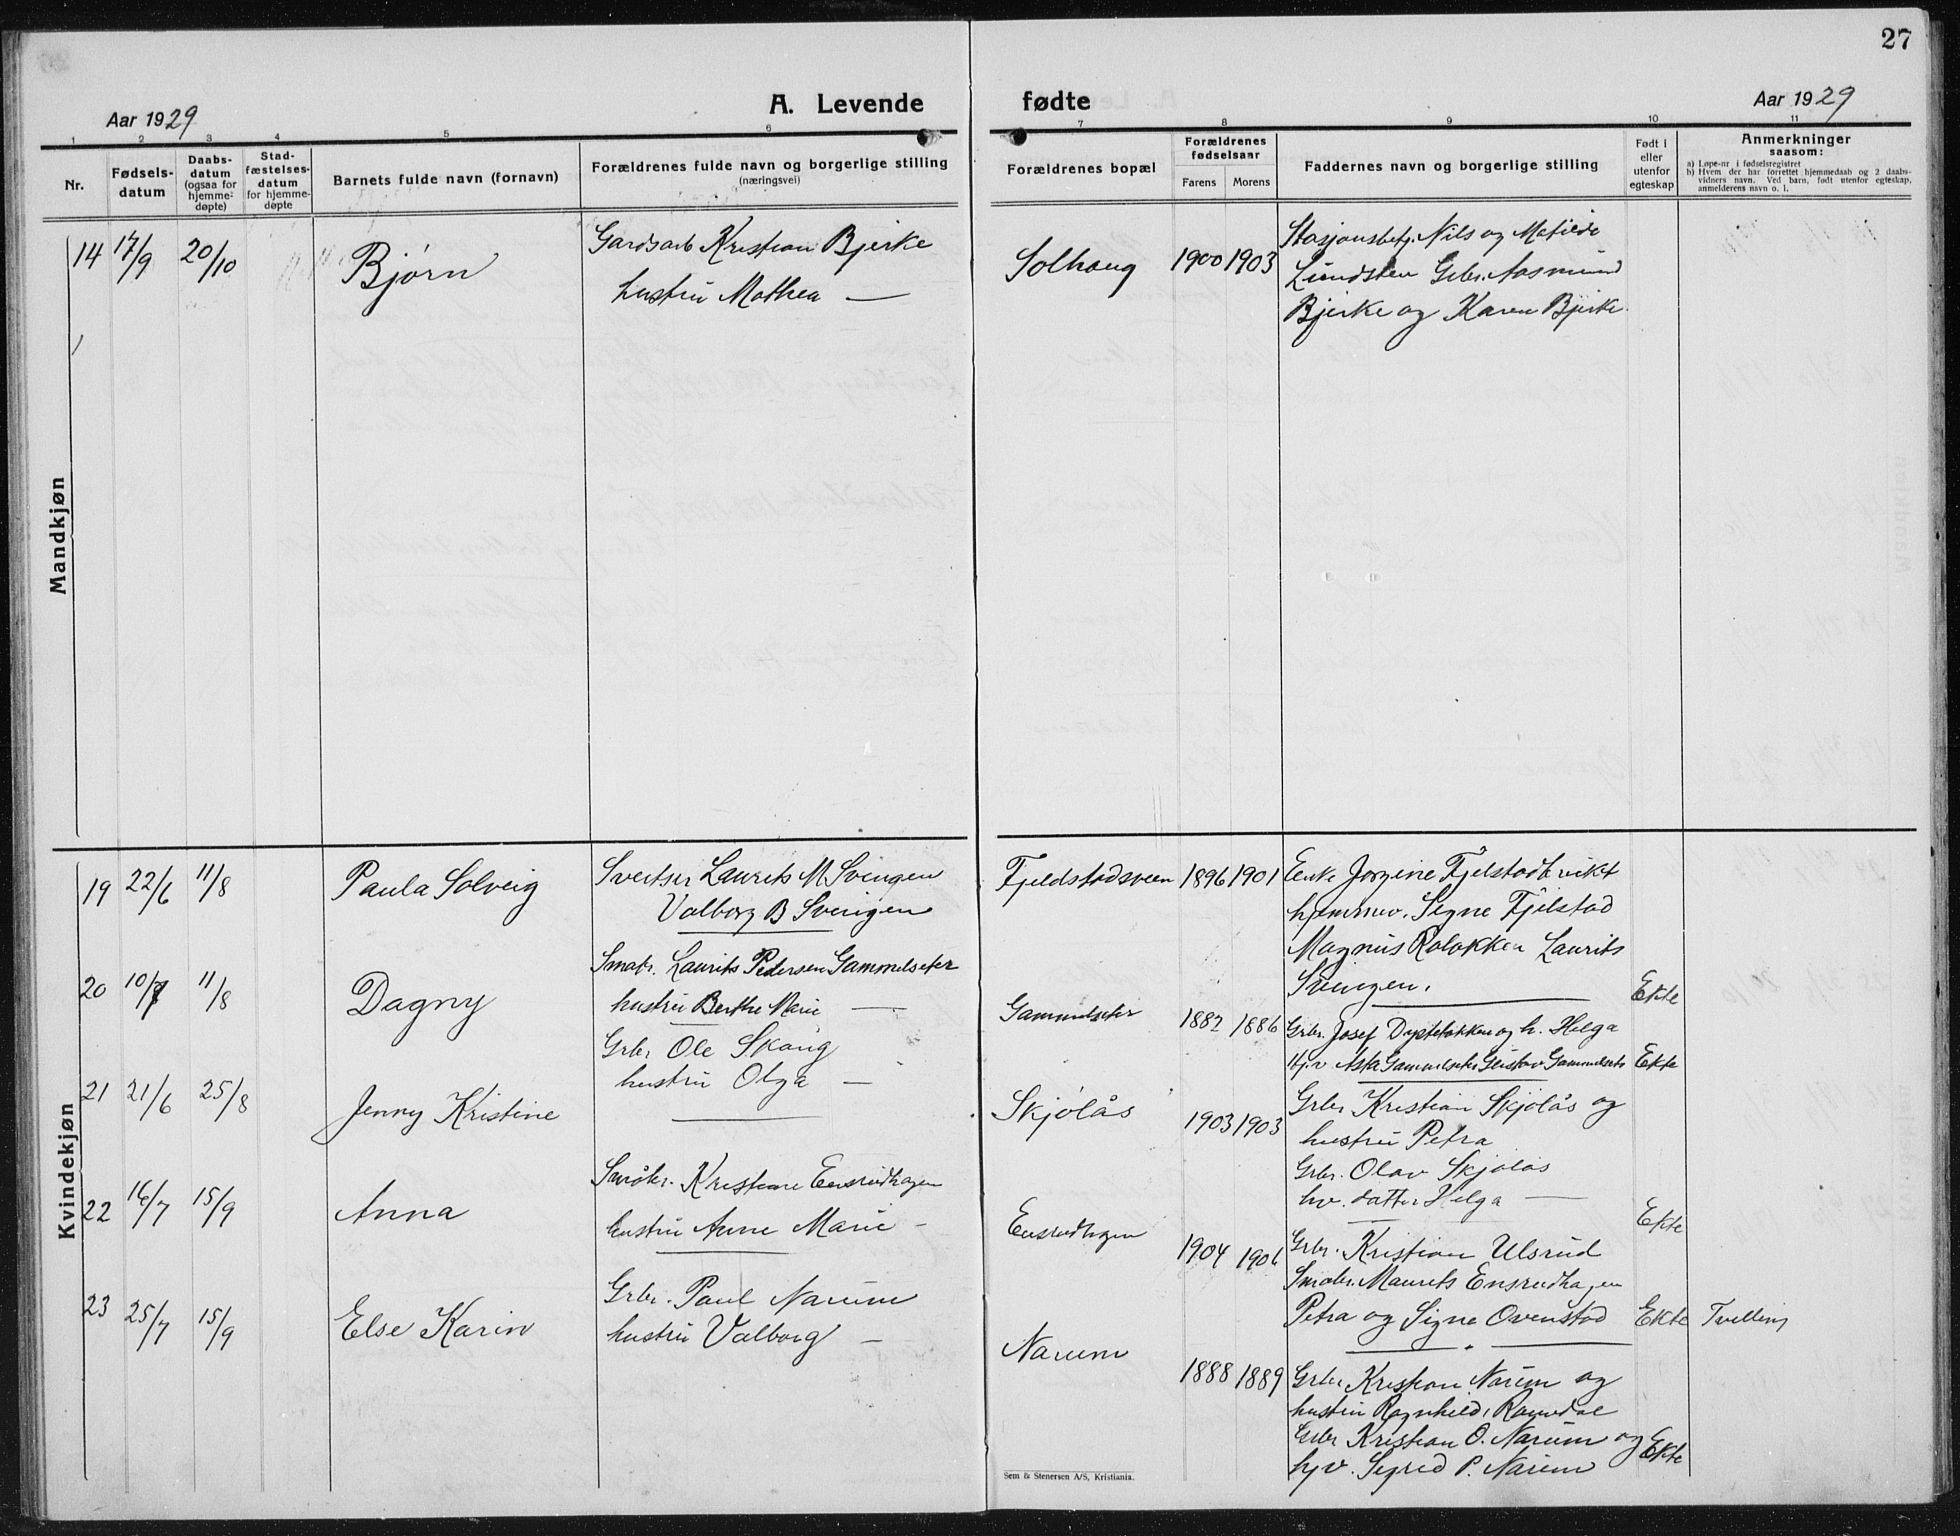 27
Aar 1929
A. Levende fødte
Aar 1929
1 2 3 4 5 6 7 8 9 10 11
Nr.
Fødsels-
datum
Daabs-
datum
(ogsaa for
hjemme-
døpte)
Stad-
fæstelses-
datum
for hjemme-
døpte
Barnets fulde navn (fornavn)
Forældrenes fulde navn og borgerlige stilling
(næringsvei)
Forældrenes bopæl
Forældrenes
fødselsaar
Farens Morens
Faddernes navn og borgerlige stilling
Født i
eller
utenfor
egteskap
Anmerkninger
saasom:
a) Løpe-nr i fødselsregistret
b) Hvem der har forrettet hjemmedaab og 2 daabs-
vidners navn. Ved barn, født utenfor egteskap,
anmelderens navn o. l.
Mandkjøn
14 17/9 20/10 Bjørn
Gardsarb Kristian Bjerke
hustru Mathea —
Solhaug 1900 1903
Stasjonsbetj. Nils og Matilde
Lundsten Grbr. Aasmund
Bjerke og Karen Bjerke.
Kvindekjøn
19 22/6 11/8 Paula Solveig
Sveitser Laurits M. Svingen
Valborg B Svingen
Fjeldstadsveen 1896 1901
Enke Jorgine Fjelstadkvikt
hjemmev. Signe Fjelstad
Magnus Laurits
Svingen.
Ekte
20 10/7 11/8 Dagny
Smabr. Laurits Pedersen Gammelseter
hustru Berthe Marie —
Gammelseter 1882 1886
Grbr. Josef og h. Helga
Hj.v Asta Gammelseter Gustav Gammelseter
Ekte
21 21/6 25/8 Jenny Kristine
Grbr Ole Skaug
hustru Olga —
Skjølås 1903 1903
Grbr Kristian Skjølås og
hustru Petra
Grbr. Olav Skjølås
hv. datter Helga —
Ekte
22 16/7 15/9 Anna
Småbr. Kristian Ensrudhagen
hustru Anne Marie —
Ensrudhagen 1904 1906
Grbr. Kristian Ulsrud
Småbr. Maurits Ensrudhagen
Petra og Signe Ovenstad
Ekte Tvilling
23 25/7 15/9 Else Karin
Grbr. Paul Narum
hustru Valborg —
Narum 1888 1889
Grbr Kristian Narum og
hustru Ragnhild,
Grbr Kristian O. Narum og
hjv. Sigrid P. Narum
Ekte
Sem & Stenersen A/S, Kristiania.